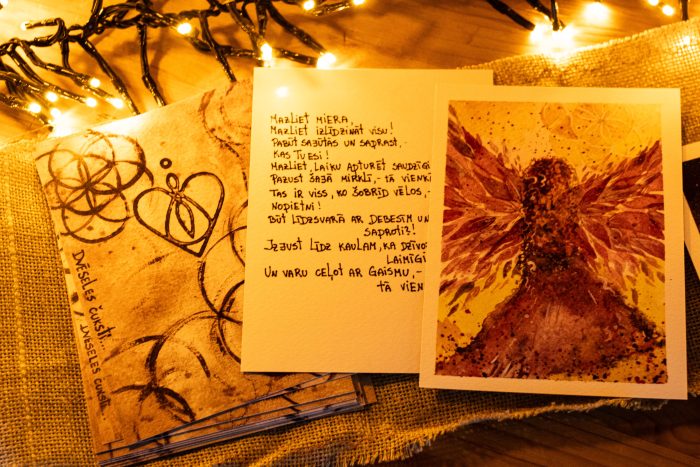 Dvēseles čuksti...
Dvēseles čuksti...
MAZLIET MIERA,
MAZLIET IZLĪDZINĀT VISU!
PABŪT SAJŪTĀS UN SAPRAST,-
KAS TU ESI!
MAZLIET, LAIKU APTURĒT SAUDZĪGI
PAZUST ŠAJĀ MIRKLĪ,- TĀ VIENKĀ
TAS IR VISS, KO ŠOBRĪD VĒLOS,-
NOPIETNI!
BŪT LĪDZSVARĀ AR DEBESĪM UN
SAPROTI?!
IZJUST LĪDZ KAULAM, KA DZĪVOJ
LAIMĪGI
UN VARU CEĻOT AR GAISMU,-
TĀ VIENK